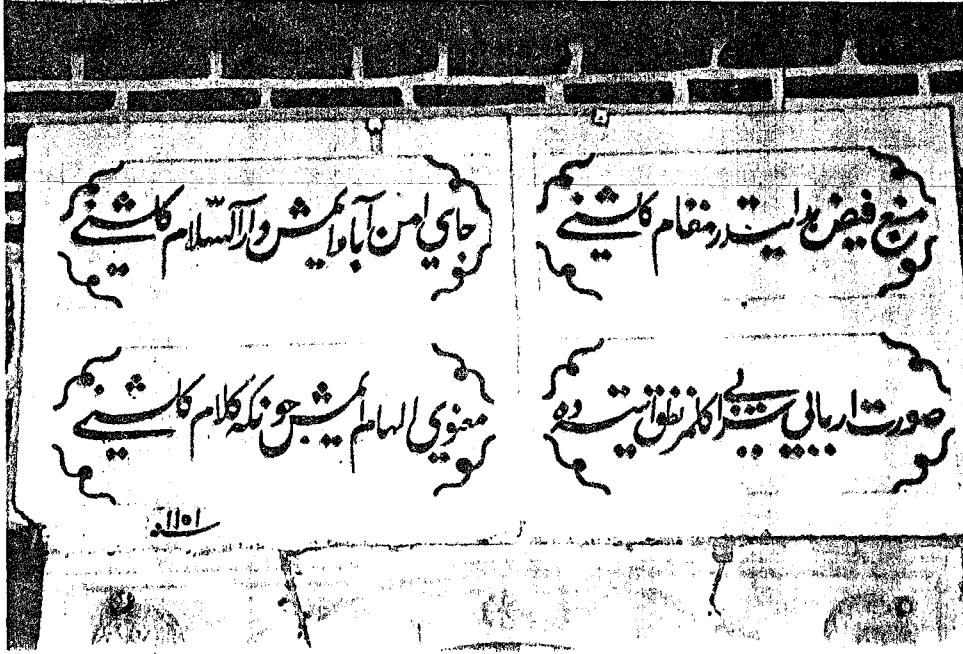 منبع فیض هدایتدر مقام کلشنی
جای امن آباد ایمش دار السّلام کلشنی
صورت اربابی نطق ایتسه ده
معنوی الهام ایمش چونکه کلام کلشنی
سنه ١١٥١